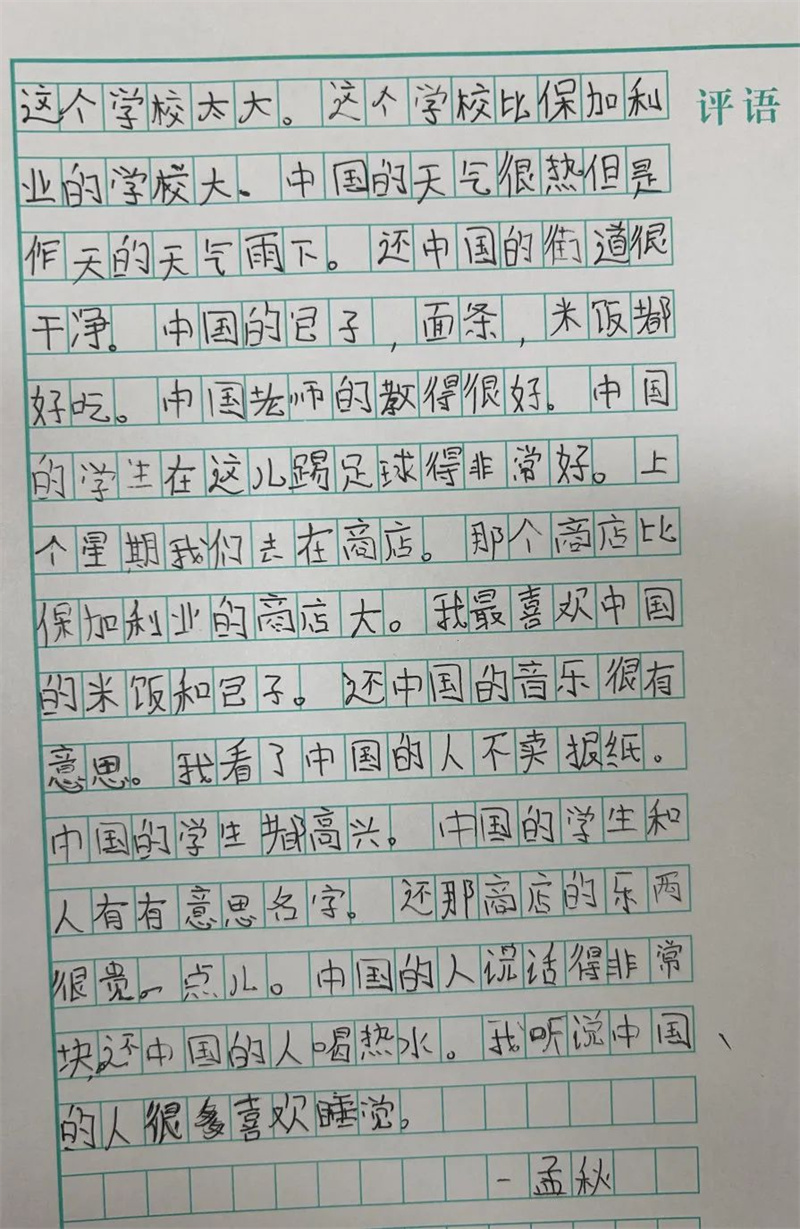 这个学校太大。这个学校比保加利
评语
业的学校大、中国的天气很热但是
作天的天气雨下。还中国的街道很
干净。中国的包子,面条,米饭都
好吃。中国老师的教得很好。中国
的学生在这儿踢足球得非常好。上
个星期我们去在商店。那个商店比
保加利业的商店大。我最喜欢中国
的米饭和包子。还中国的音乐很有
意思。我看了中国的人不卖报纸。
中国的学生都高兴。中国的学生和
人有有意思名字。还那商店的乐西
很贵一点儿。中国的人说话得非常
块,还中国的人喝热水。我听说中国、
的人很多喜欢睡觉。
-孟秋